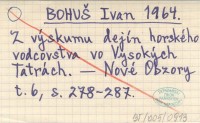 BOHUŠ Ivan 1964.
Z výskumu dejín horského
vodcovstva vo Vysokých
Tatrách. — Nové Obzory
t. 6, s. 278-287.